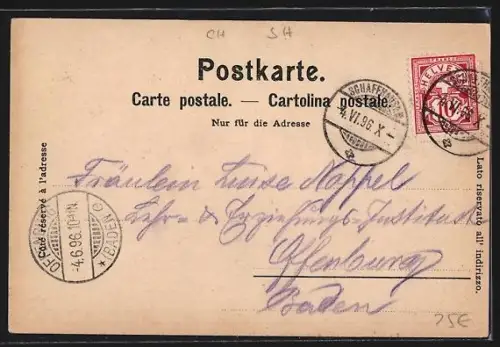 CH SH
Postkarte.
Carte postale. — Cartolina postale.
Nur für die Adresse
Côté réservé à l'adresse
Lato riservato all' indirizzo.
HELVETIA
SCHAFFHAUSEN
4.VI.96.X
Fräulein Luise Nappel
Lehr- & Erziehungs-Institut
Offenburg
Baden
OFFENBURG
4.6.96.10-11N.
* (BADEN)
25E